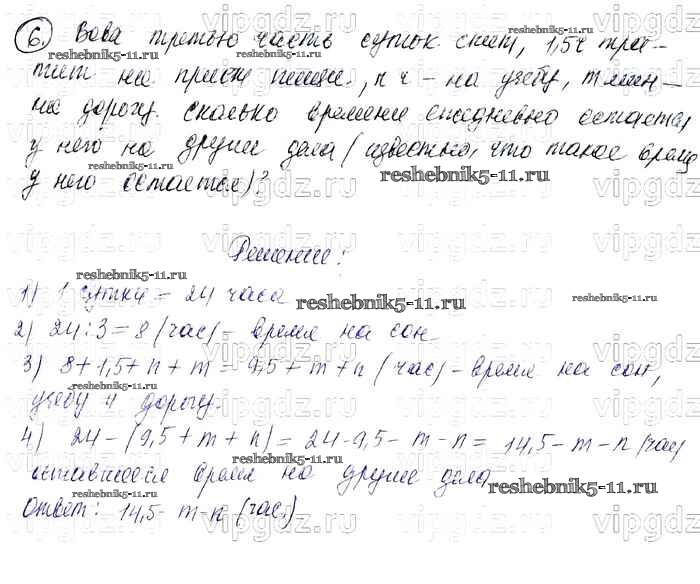 6. Вова третью часть суток спит, 1,5ч тра-
тит на прием пищи, n ч - на учебу, m мин -
на дорогу. Сколько времени ежедневно остается
у него на другие дела (известно, что такое время
у него остается)?
Решение:
1) 1 сутки = 24 часа
2) 24:3=8 (час) - время на сон.
3) 8+1,5+n+m = 9,5+m+n (час) - время на сон,
учебу и дорогу.
4) 24-(9,5+m+n) = 24-9,5-m-n = 14,5-m-n (час)
оставшееся время на другие дела
Ответ: 14,5-m-n (час).
vipgdz.ru
reshebnik5-11.ru